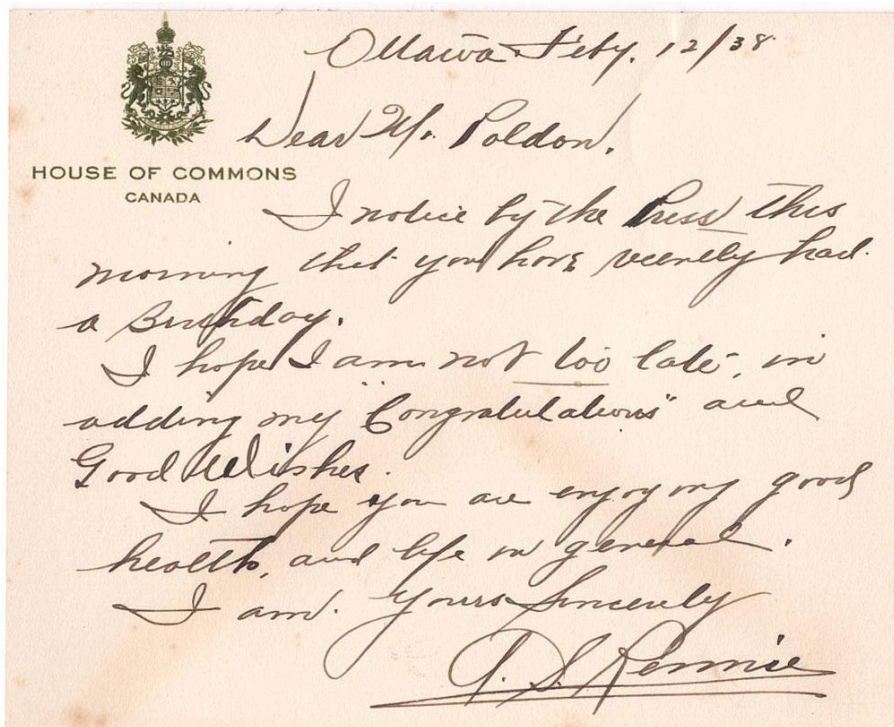 Ottawa Feby. 12/38
Dear Mr. Poldon.
HOUSE OF COMMONS
CANADA
I notice by the Press this
morning that you have recently had
a Birthday.
I hope I am not too late, in
adding my "Congratulations" and
Good Wishes.
I hope you are enjoying good
health, and life in general.
I am. Yours Sincerely
A. S. Rennie